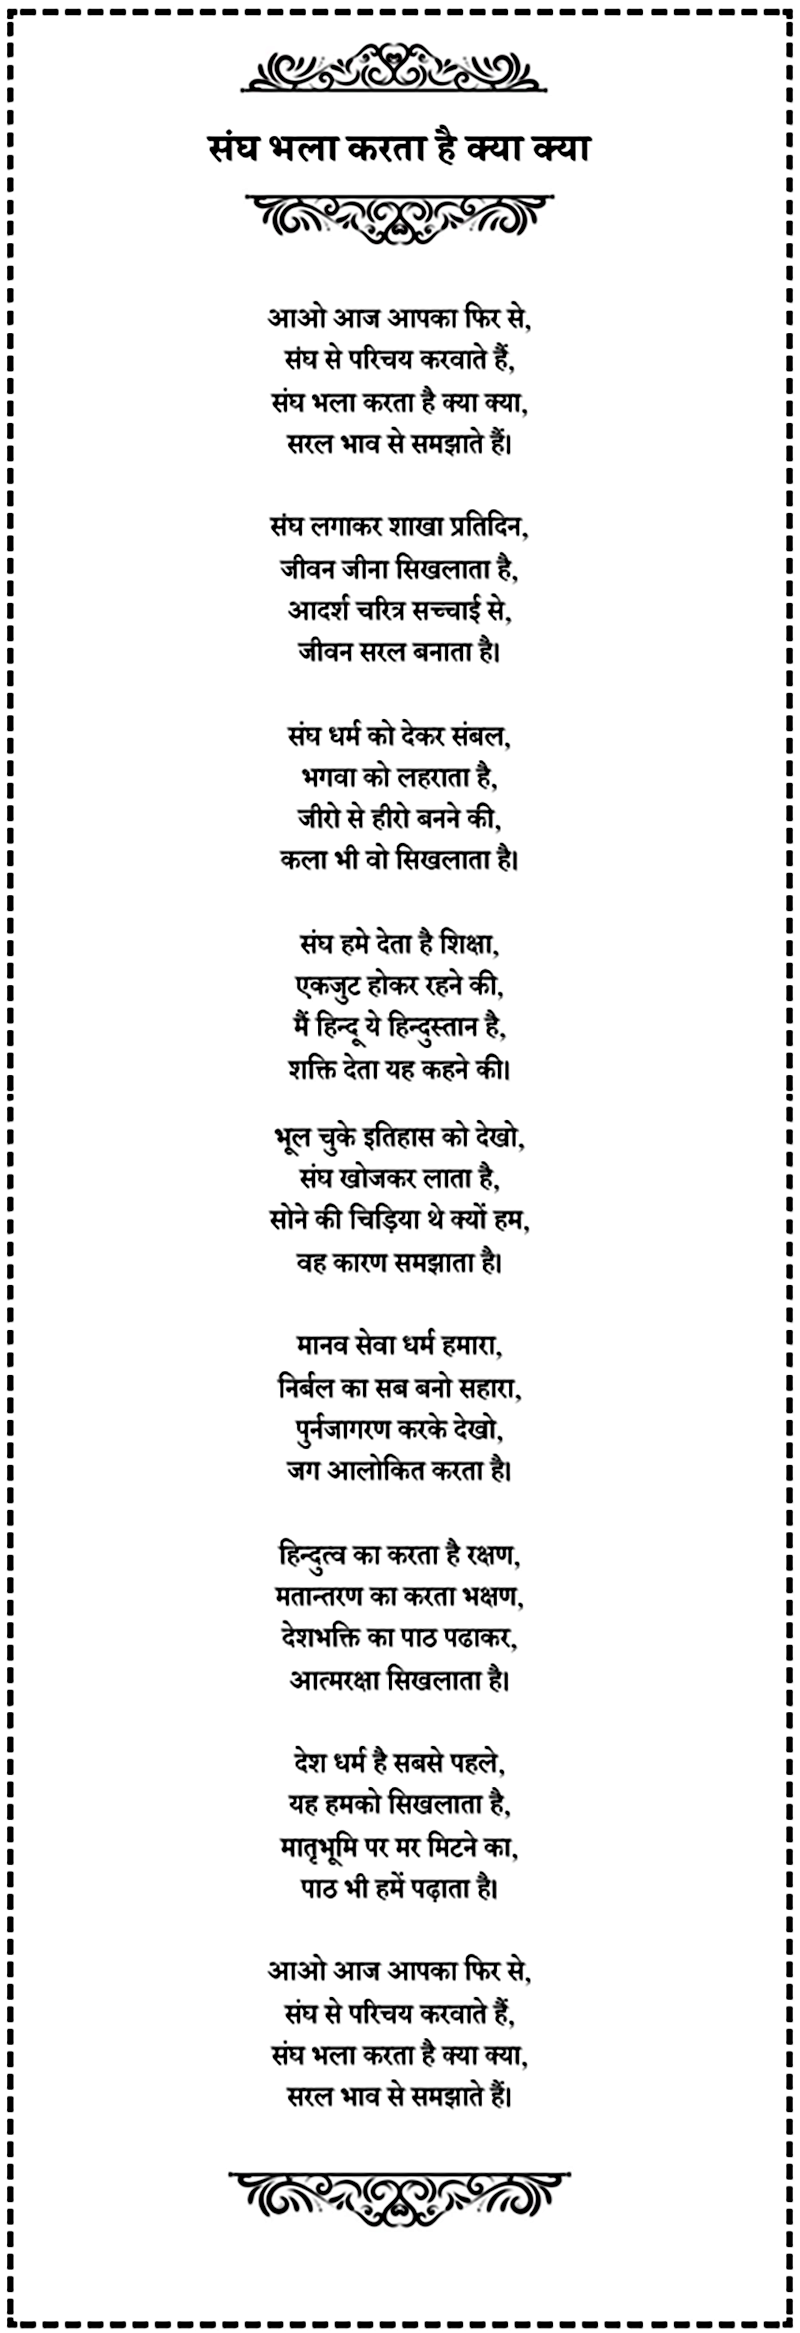 संघ भला करता है क्या क्या
आओ आज आपका फिर से,
संघ से परिचय करवाते हैं,
संघ भला करता है क्या क्या,
सरल भाव से समझाते हैं।
संघ लगाकर शाखा प्रतिदिन,
जीवन जीना सिखलाता है,
आदर्श चरित्र सच्चाई से,
जीवन सरल बनाता है।
संघ धर्म को देकर संबल,
भगवा को लहराता है,
जीरो से हीरो बनने की,
कला भी वो सिखलाता है।
संघ हमे देता है शिक्षा,
एकजुट होकर रहने की,
मैं हिन्दू ये हिन्दुस्तान है,
शक्ति देता यह कहने की।
भूल चुके इतिहास को देखो,
संघ खोजकर लाता है,
सोने की चिड़िया थे क्यों हम,
वह कारण समझाता है।
मानव सेवा धर्म हमारा,
निर्बल का सब बनो सहारा,
पुर्नजागरण करके देखो,
जग आलोकित करता है।
हिन्दुत्व का करता है रक्षण,
मतान्तरण का करता भक्षण,
देशभक्ति का पाठ पढाकर,
आत्मरक्षा सिखलाता है।
देश धर्म है सबसे पहले,
यह हमको सिखलाता है,
मातृभूमि पर मर मिटने का,
पाठ भी हमें पढ़ाता है।
आओ आज आपका फिर से,
संघ से परिचय करवाते हैं,
संघ भला करता है क्या क्या,
सरल भाव से समझाते हैं।